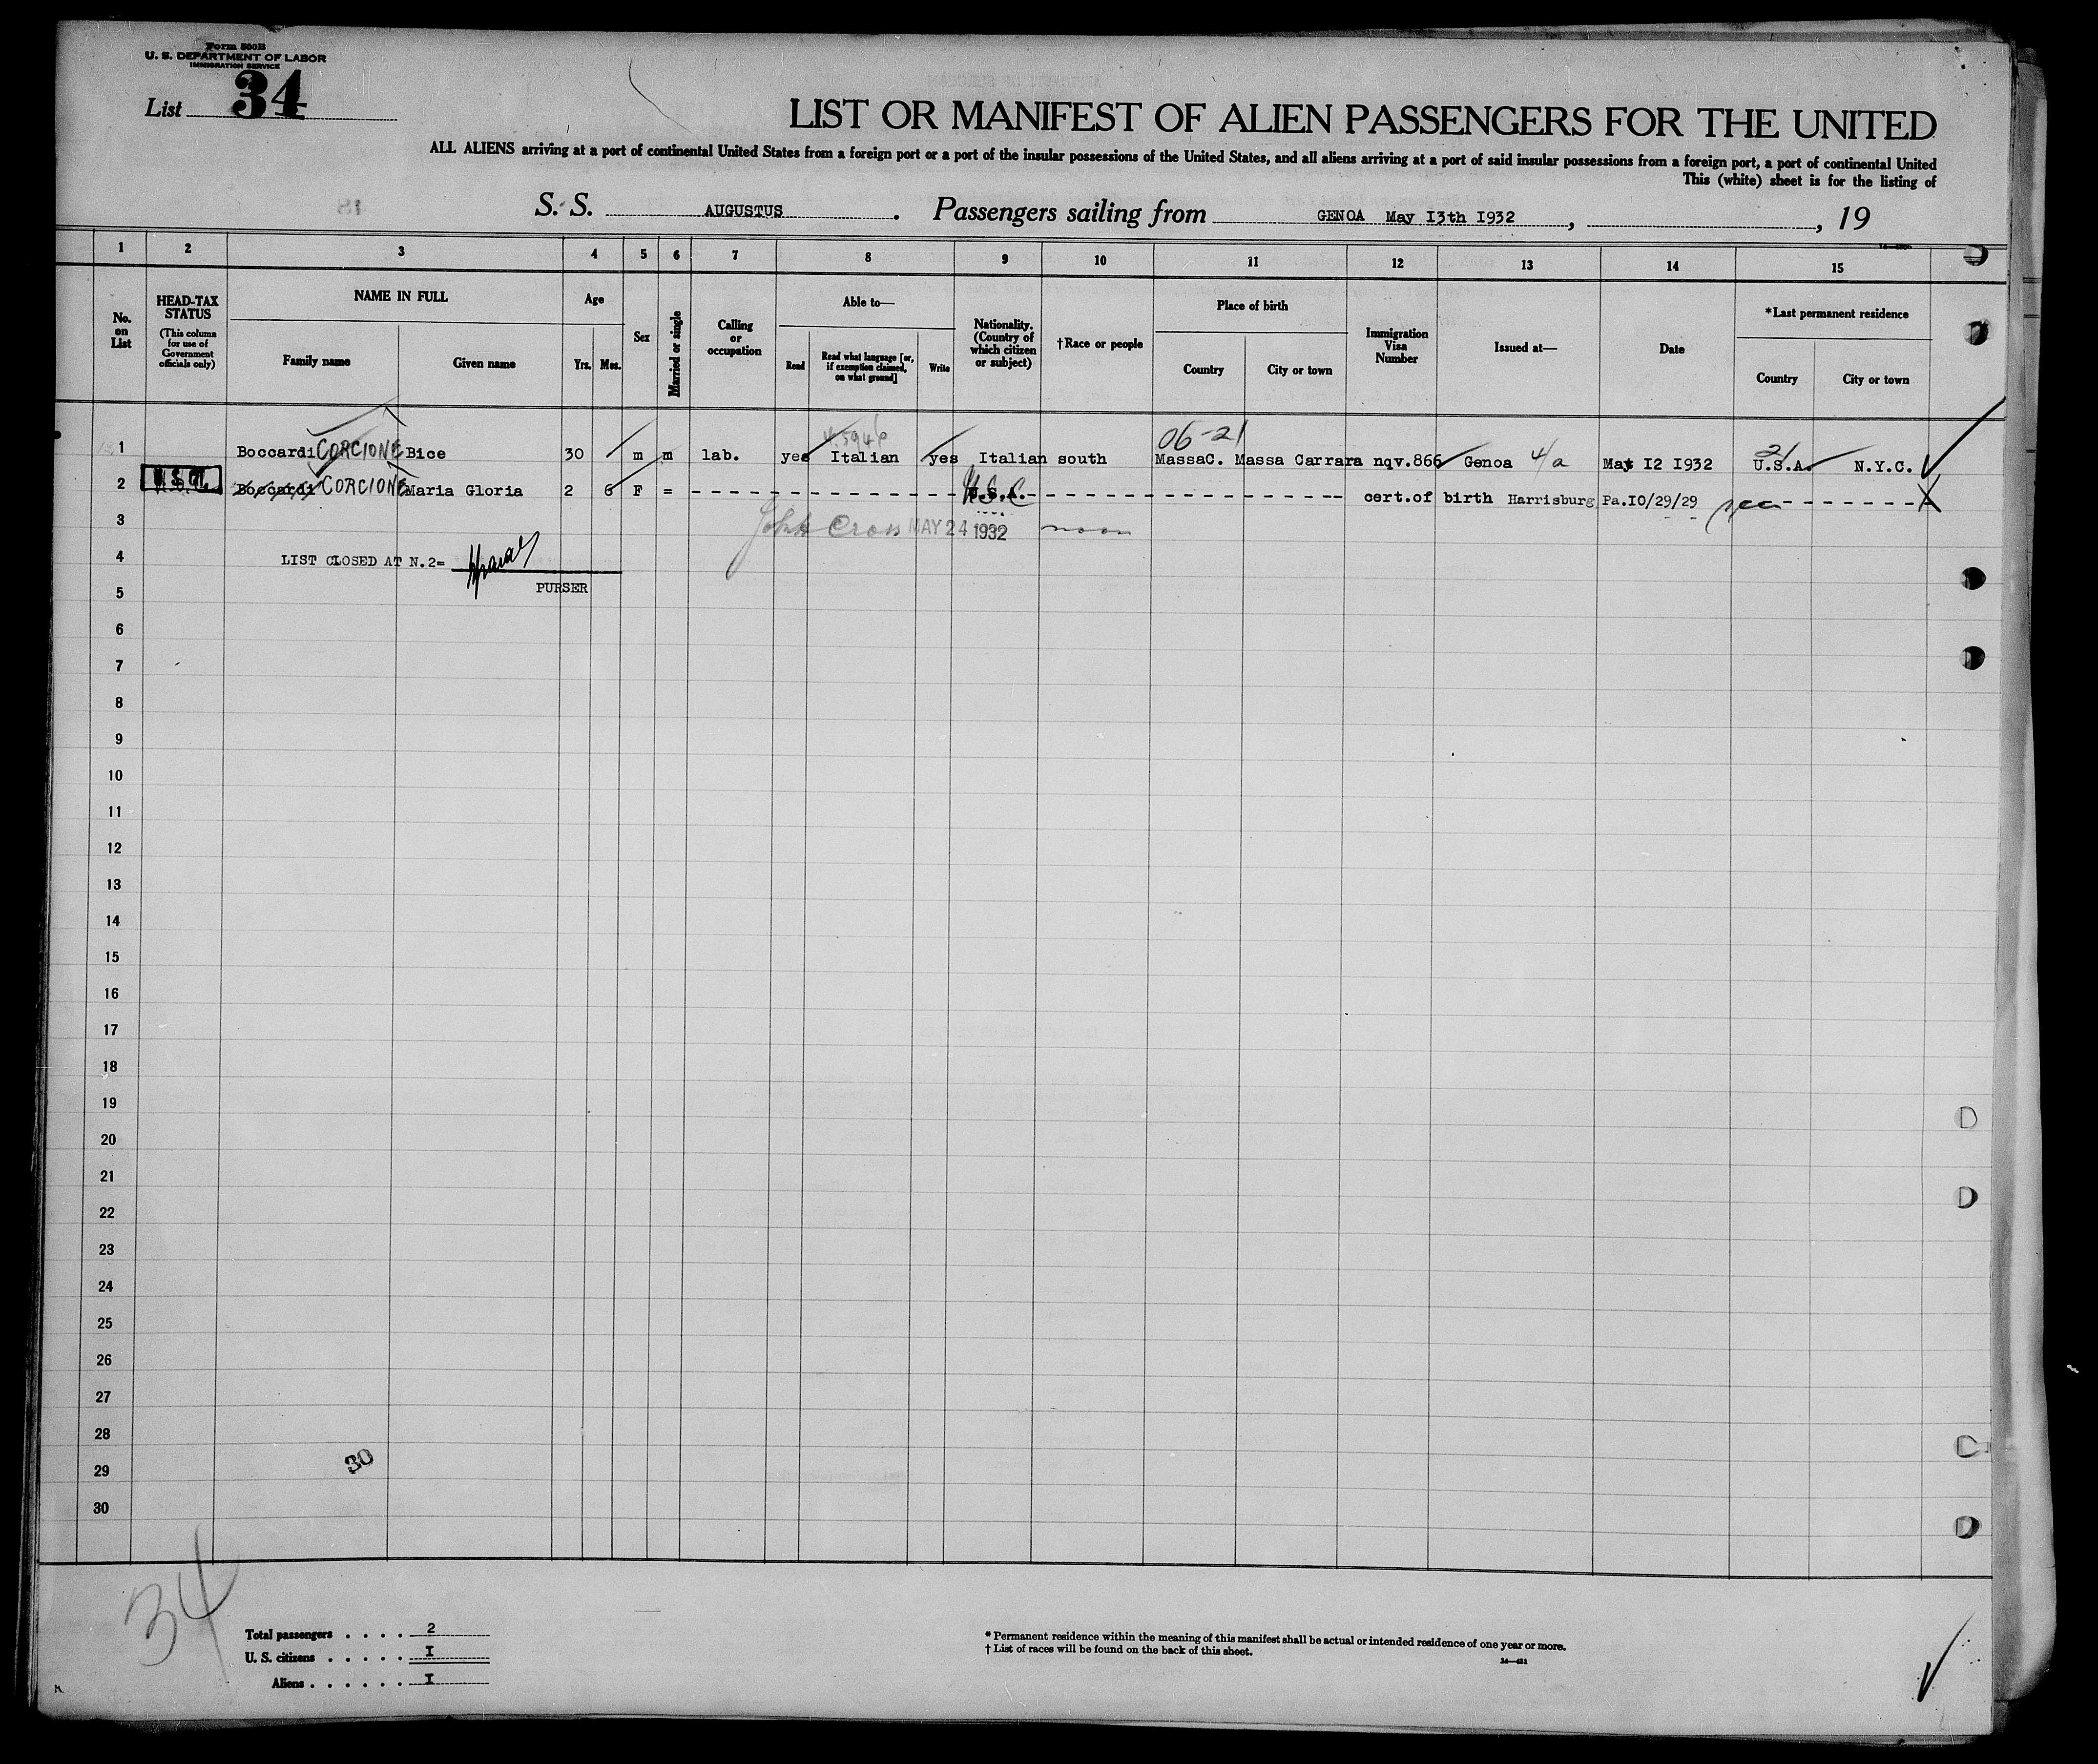 Form 500B
U. S. DEPARTMENT OF LABOR
IMMIGRATION SERVICE
List 34
LIST OR MANIFEST OF ALIEN PASSENGERS FOR THE UNITED
ALL ALIENS arriving at a port of continental United States from a foreign port or a port of the insular possessions of the United States, and all aliens arriving at a port of said insular possessions from a foreign port, a port of continental United
This (white) sheet is for the listing of
S. S. AUGUSTUS. Passengers sailing from GENOA May I3th I932, , 19
1 2 3 4 5 6 7 8 9 10 11 12 13 14 15
No. on List
HEAD-TAX STATUS (This column for use of Government officials only)
NAME IN FULL
Family name Given name
Age
Yrs. Mos.
Sex
Married or single
Calling or occupation
Able to—
Read
Read what language [or, if exemption claimed, on what ground]
Write
Nationality. (Country of which citizen or subject)
†Race or people
Place of birth
Country City or town
Immigration Visa Number
Issued at—
Date
*Last permanent residence
Country City or town
06-21 21
1 Boccardi CORCIONE Bice 30 m m lab. yes Italian yes Italian south MassaC. Massa Carrara nqv.866 Genoa 4/a May I2 I932 U.S.A. N.Y.C.
2 Boccardi CORCIONE Maria Gloria 2 6 F = U.S.A. cert.of birth Harrisburg Pa.IO/29/29
3 John Cross MAY 24 1932
4 LIST CLOSED AT N.2=
5 PURSER
6
7
8
9
10
11
12
13
14
15
16
17
18
19
20
21
22
23
24
25
26
27
28
29 30
30
34
Total passengers . . . . 2
U. S. citizens . . . . . I
Aliens . . . . . . I
* Permanent residence within the meaning of this manifest shall be actual or intended residence of one year or more.
† List of races will be found on the back of this sheet.